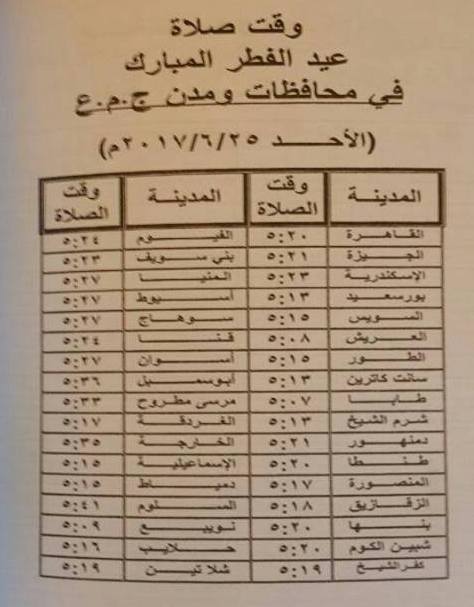 وقت صلاة
عيد الفطر المبارك
في محافظات ومدن ج.م.ع
(الأحــد ٢٠١٧/٦/٢٥م)
المدينة وقت الصلاة المدينة وقت الصلاة
القاهرة ٥:٢٠ الفيوم ٥:٢٤
الجيزة ٥:٢١ بني سويف ٥:٢٣
الإسكندرية ٥:٢٣ المنيا ٥:٢٧
بورسعيد ٥:١٣ أسيوط ٥:٢٧
السويس ٥:١٥ سوهاج ٥:٢٧
العريش ٥:٠٨ قنا ٥:٢٤
الطور ٥:١٥ أسوان ٥:٢٧
سانت كاترين ٥:١٣ أبوسمبل ٥:٣٦
طابا ٥:٠٧ مرسى مطروح ٥:٣٣
شرم الشيخ ٥:١٣ الغردقة ٥:١٧
دمنهور ٥:٢١ الخارجة ٥:٣٥
طنطا ٥:٢٠ الإسماعيلية ٥:١٥
المنصورة ٥:١٧ دمياط ٥:١٥
الزقازيق ٥:١٨ السلوم ٥:٤١
بنها ٥:٢٠ نويبع ٥:٠٩
شبين الكوم ٥:٢٠ حلايب ٥:١٦
كفر الشيخ ٥:١٩ شلاتين ٥:١٩